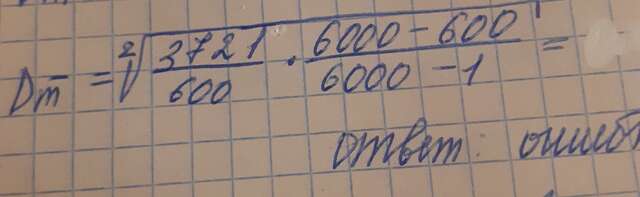 Dm̅ = ²√(3721/600 · (6000 − 600)/(6000 − 1)) =
ответ: ошиб